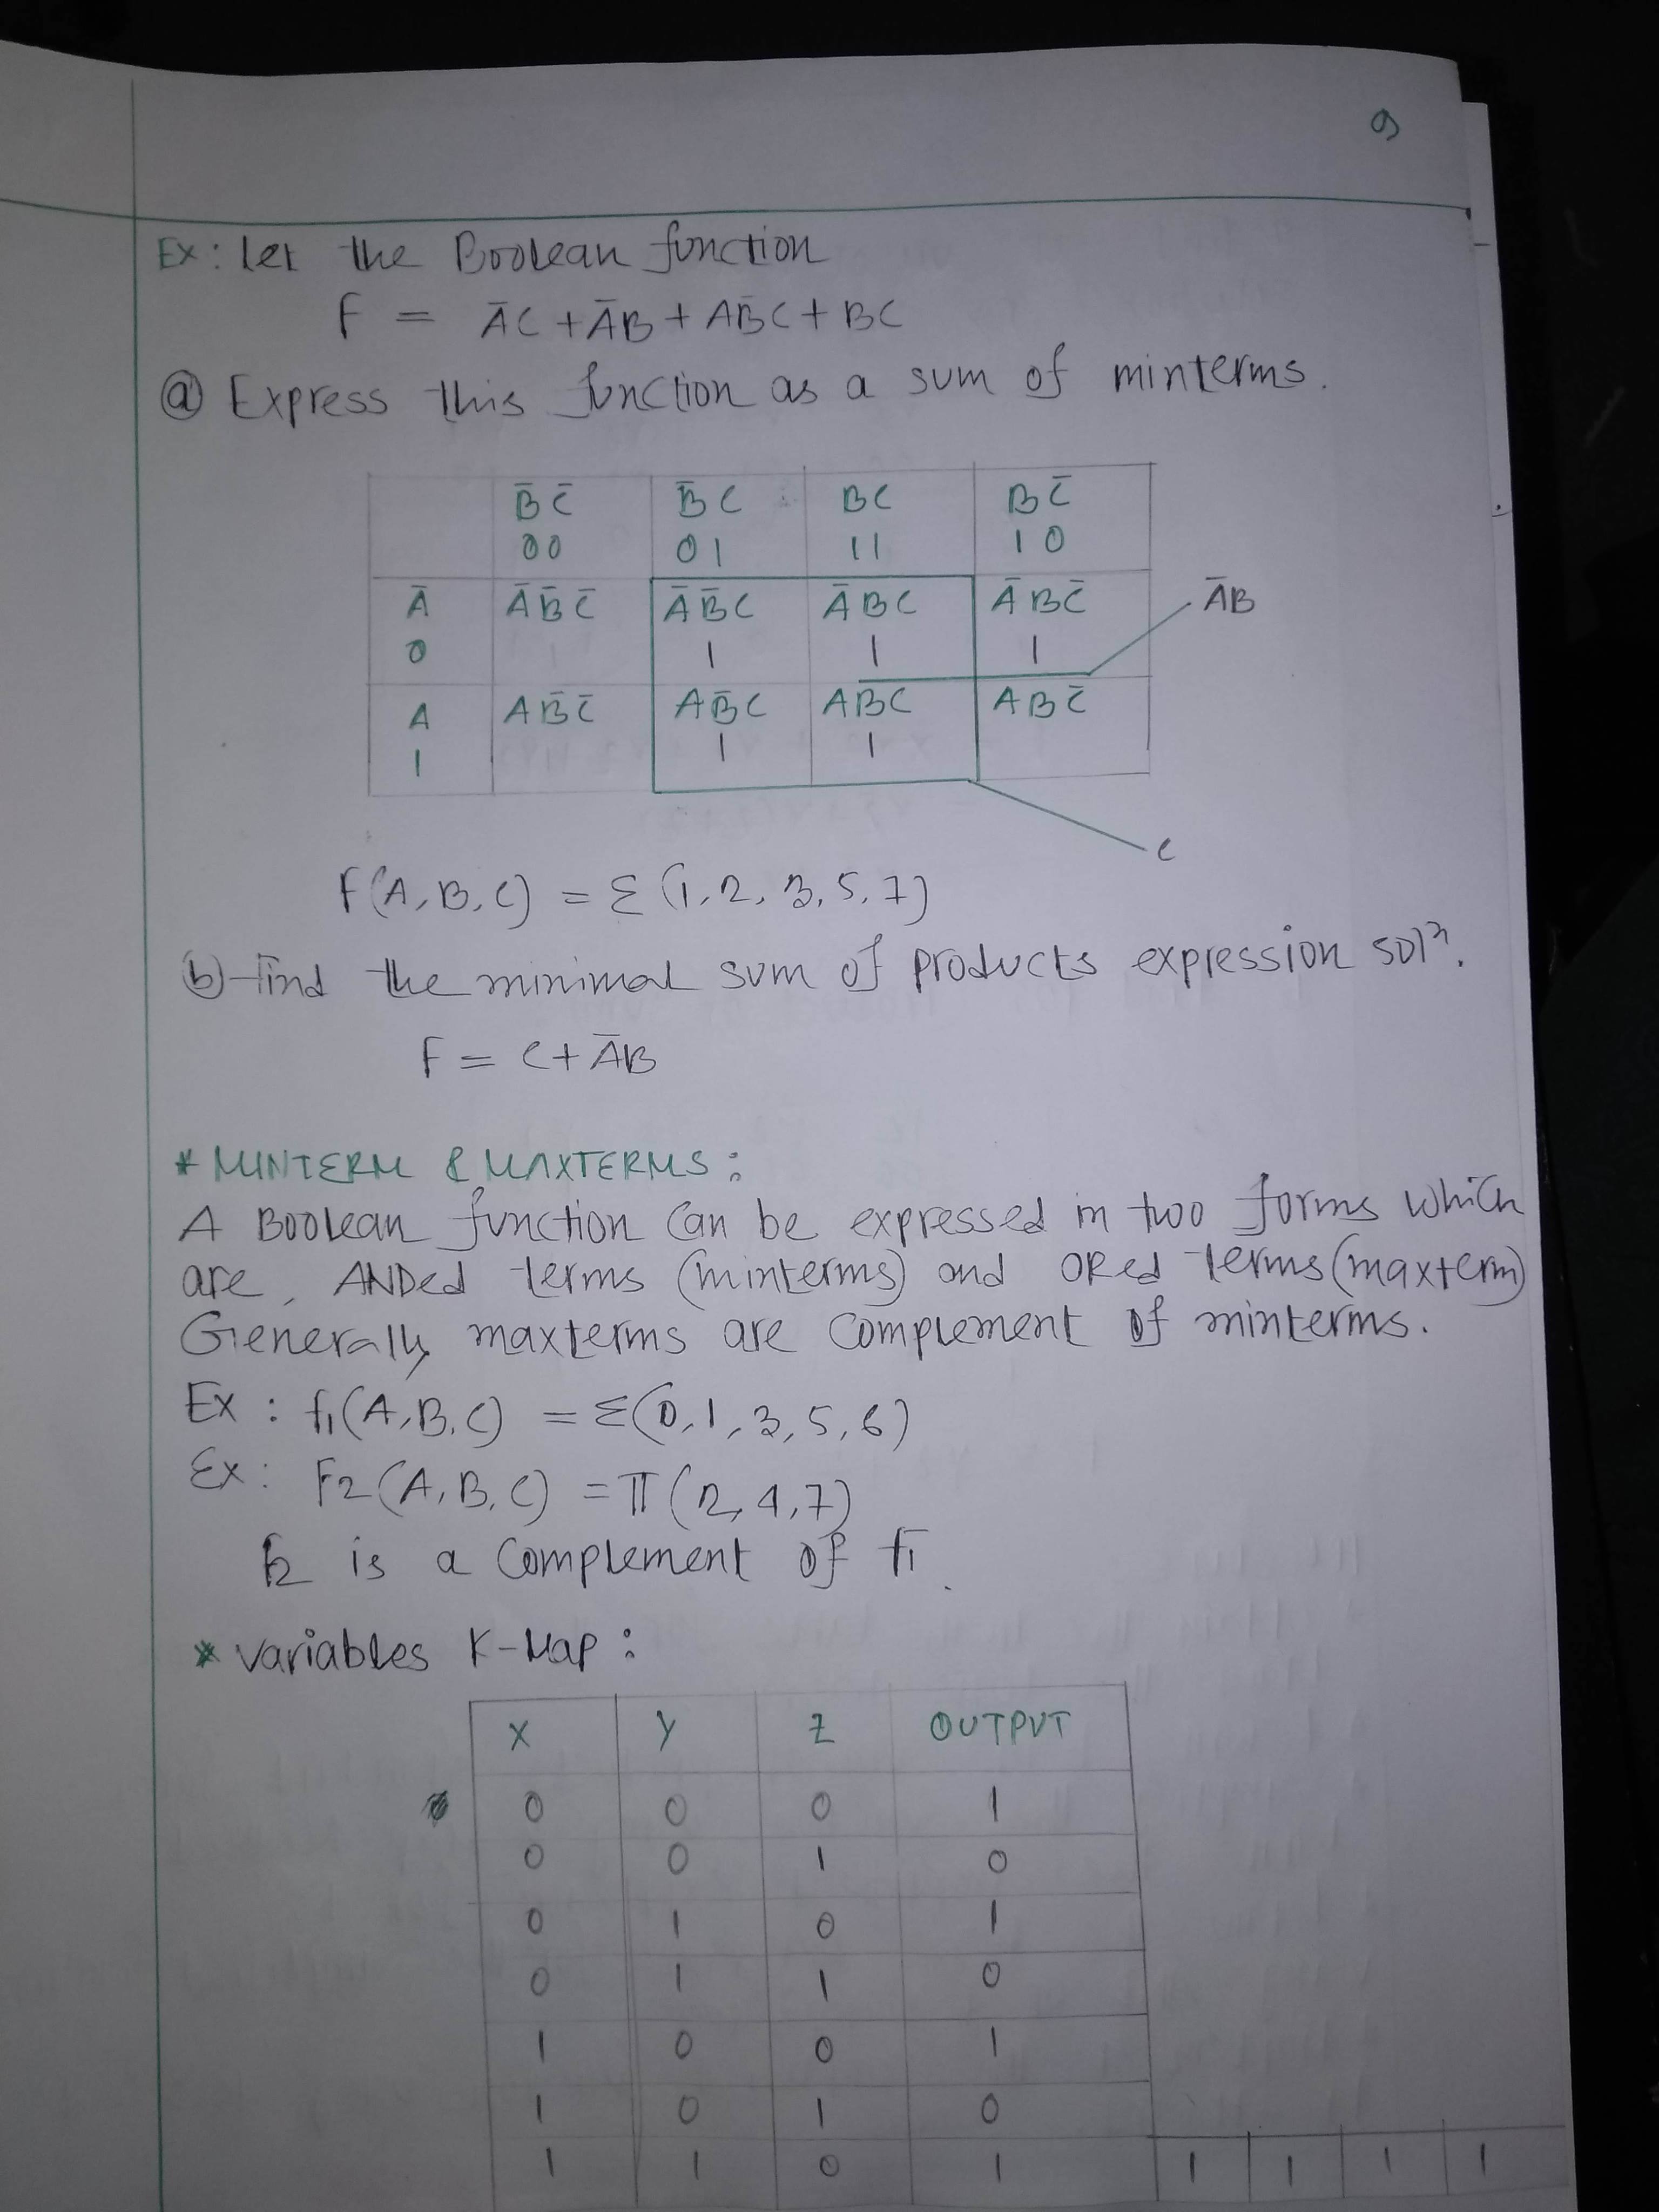 9
Ex: Let the Boolean function
F = A̅C + A̅B + AB̅C + BC
ⓐ Express this function as a sum of minterms.
B̅C̅ B̅C BC BC̅
00 01 11 10
A̅ A̅B̅C̅ A̅B̅C A̅BC A̅BC̅ A̅B
0 1 1 1
A AB̅C̅ AB̅C ABC ABC̅
1 1 1
C
F(A,B,C) = Σ(1,2,3,5,7)
ⓑ Find the minimal sum of products expression solⁿ.
F = C + A̅B
* MINTERM & MAXTERMS:
A Boolean function can be expressed in two forms which
are, ANDed terms (minterms) and ORed terms (maxterm)
Generally maxterms are complement of minterms.
Ex: f1(A,B,C) = Σ(0,1,3,5,6)
Ex: F2(A,B,C) = π(2,4,7)
F2 is a complement of f1.
* variables K-Map:
X Y Z OUTPUT
0 0 0 1
0 0 1 0
0 1 0 1
0 1 1 0
1 0 0 1
1 0 1 0
1 1 0 1 1 1 1 1